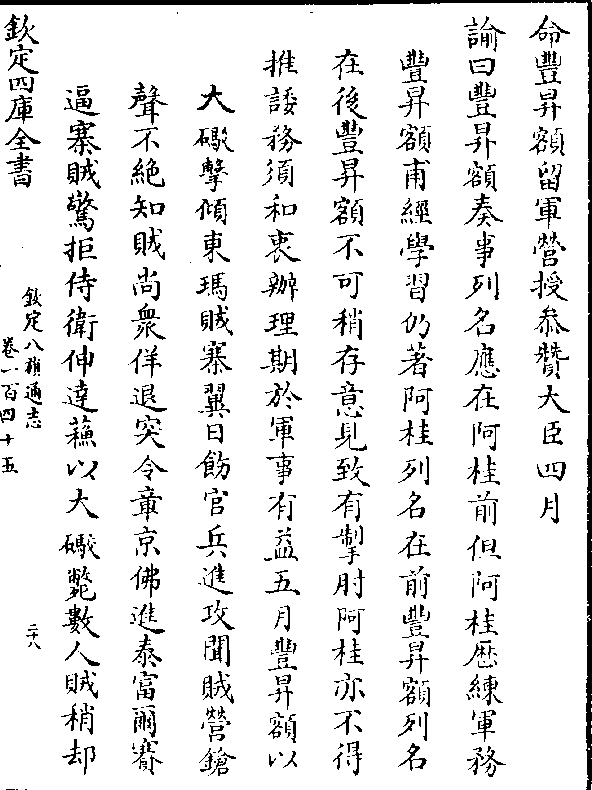 命豐昇額留軍營授叅贊大臣四月
諭曰豐昇額奏事列名應在阿桂前但阿桂歴練軍務
豐昇額甫經學習仍著阿桂列名在前豐昇額列名
在後豐昇額不可稍存意見致有掣肘阿桂亦不得
推諉務須和衷辦理期於軍事有益五月豐昇額以
大礮擊傾東瑪賊寨翼日飭官兵進攻聞賊營鎗
聲不絶知賊尚衆佯退突令章京佛進泰富爾賽
逼寨賊驚拒侍衛伸達蘓以大礮斃數人賊稍却
欽定四庫全書
欽定八旗通志
卷一百四十五
二十八